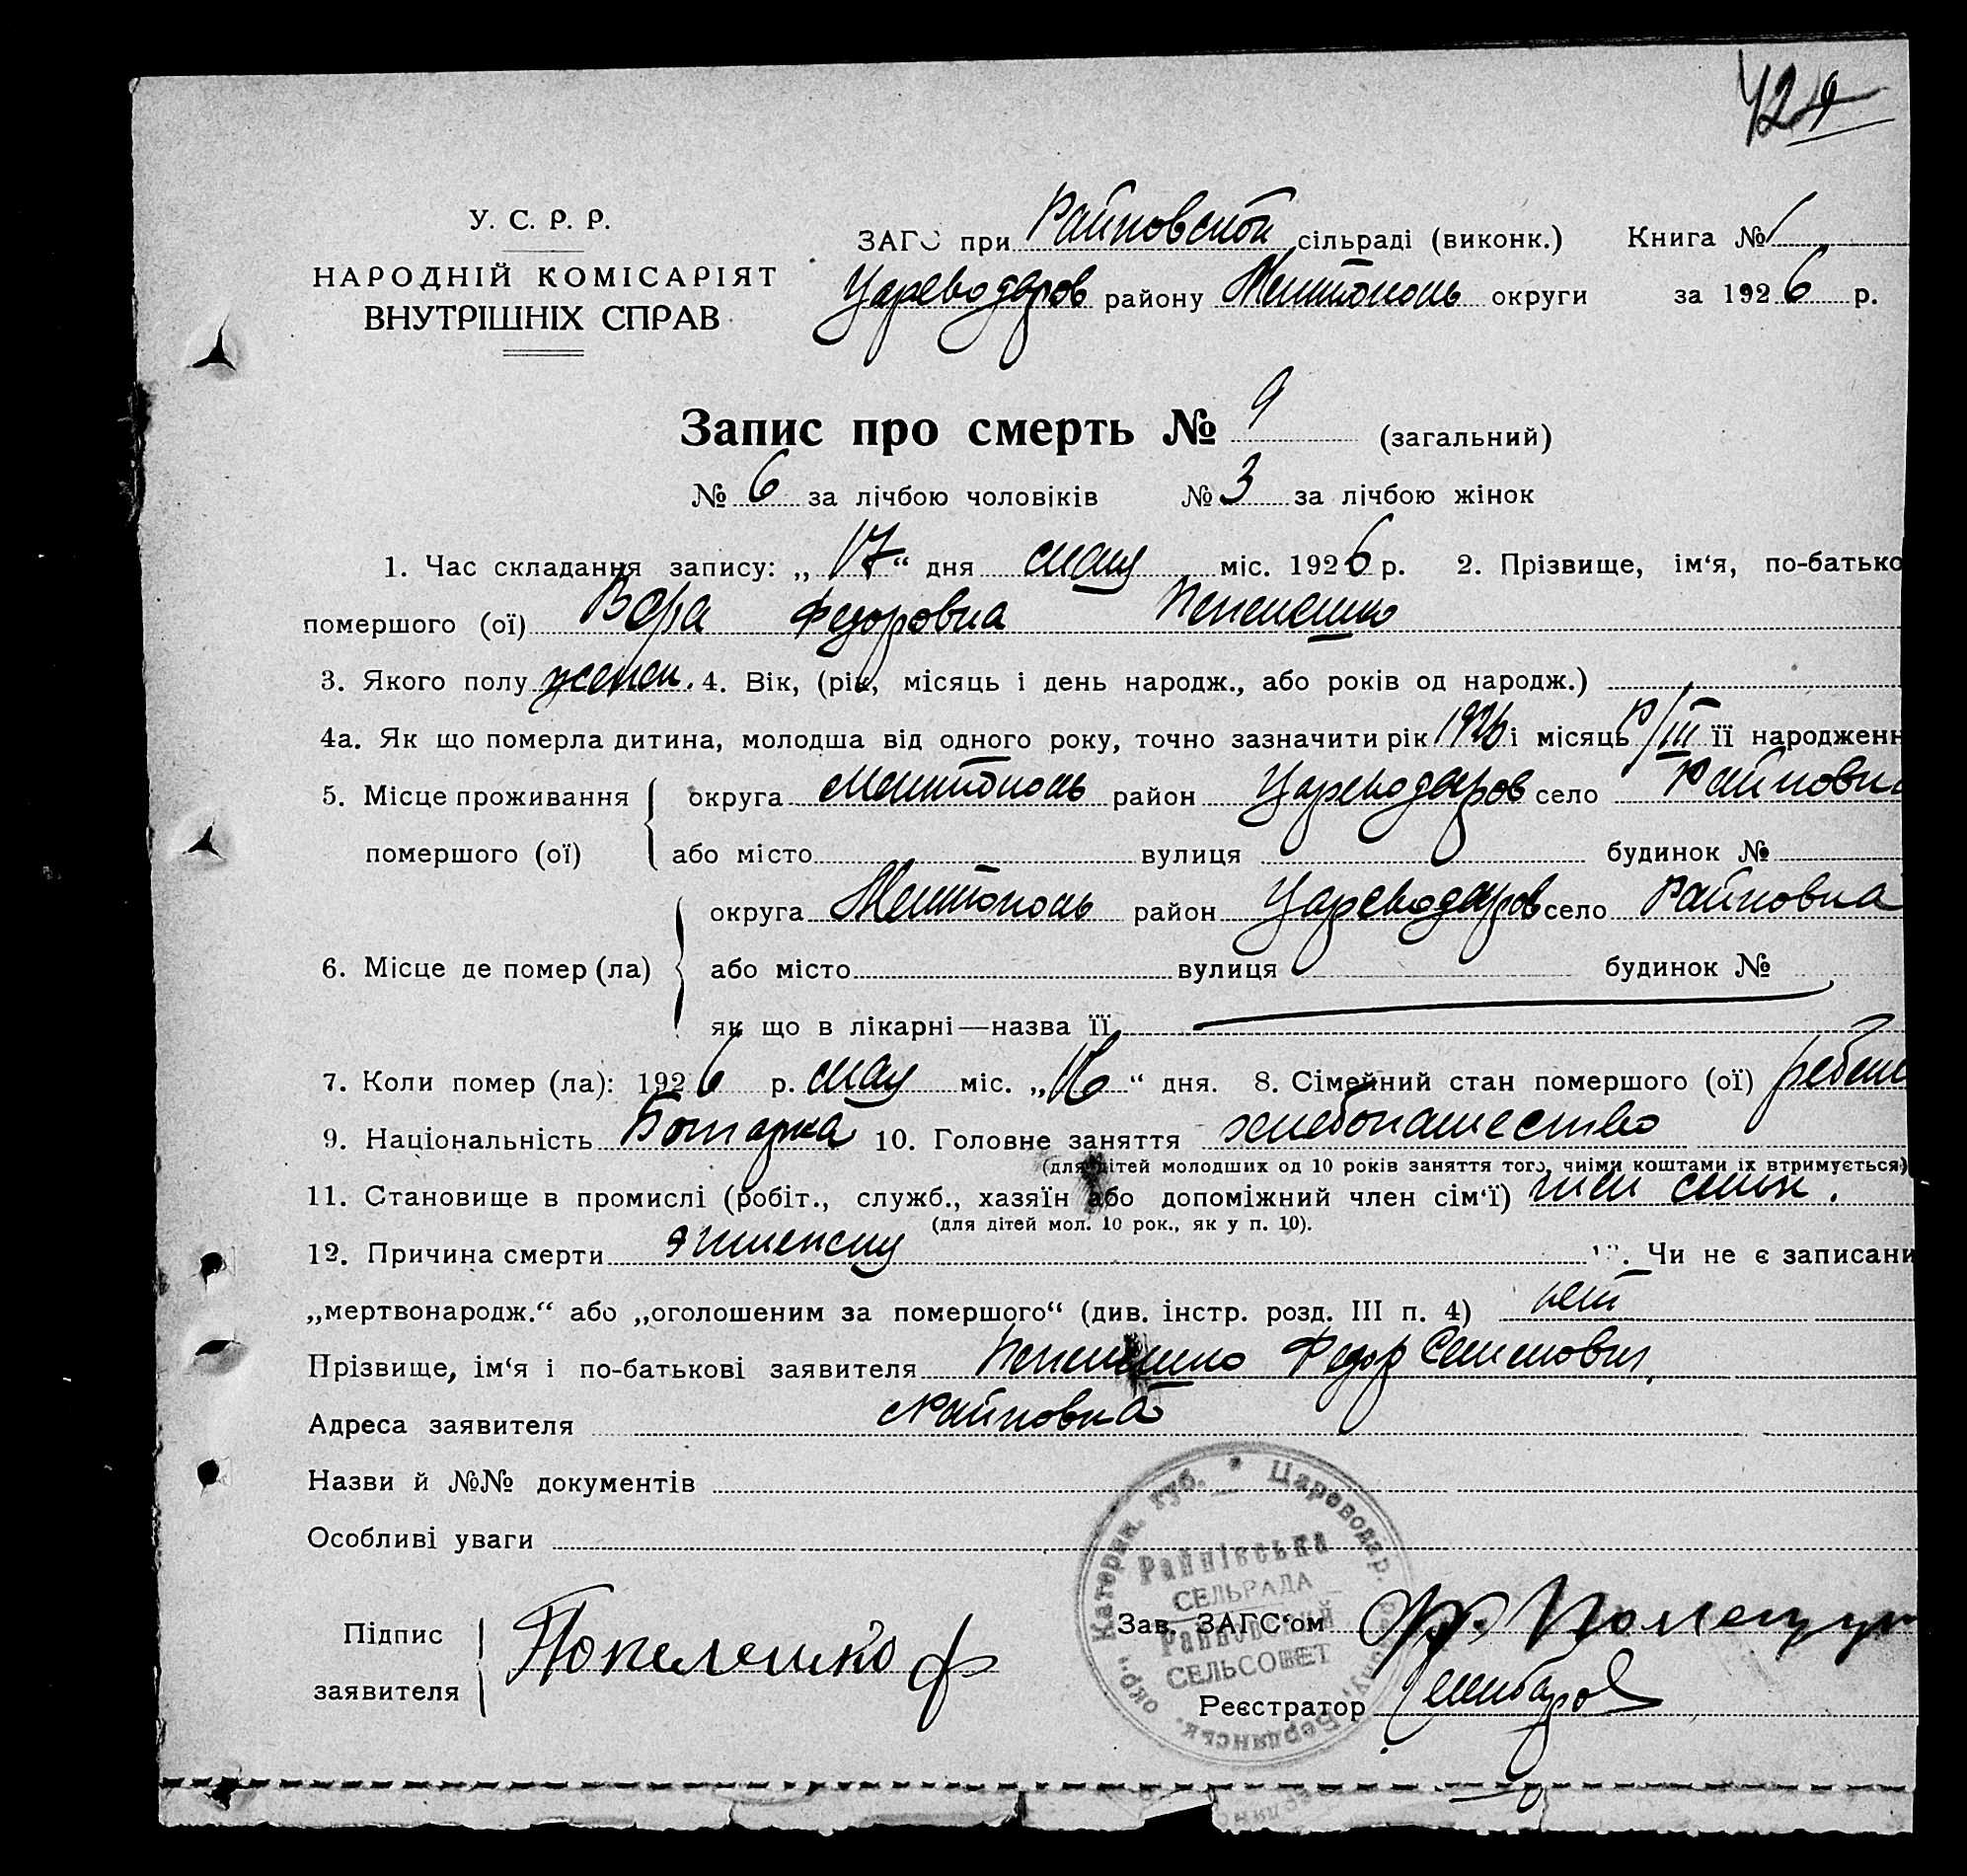 424
У. С. Р. Р.
НАРОДНІЙ КОМІСАРІЯТ
ВНУТРІШНІХ СПРАВ
ЗАГС при Райновской сільраді (виконк.) Книга № 1
Цареводаров району Мелитополь округи за 1926 р.
Запис про смерть № 9 (загальний)
№ 6 за лічбою чоловіків № 3 за лічбою жінок
1. Час складання запису: „17“ дня мая міс. 1926 р. 2. Прізвище, ім‘я, по-батько
помершого (ої) Вера Федоровна Пепелешко
3. Якого полу женск. 4. Вік, (рік, місяць і день народж., або років од народж.)
4а. Як що померла дитина, молодша від одного року, точно зазначити рік 1926 і місяць /III її народженн
5. Місце проживання помершого (ої) округа Мелитополь район Цареводаров село Райновка
або місто вулиця будинок №
6. Місце де помер (ла) округа Мелитополь район Цареводаров село Райновка
або місто вулиця будинок №
як що в лікарні—назва її
7. Коли помер (ла): 1926 р. мая міс. „16“ дня. 8. Сімейний стан помершого (ої) ребен
9. Національність Болгарка 10. Головне заняття хлебопашество
(для дітей молодших од 10 років заняття того, чиїми коштами їх втримується)
11. Становище в промислі (робіт., служб., хазяїн або допоміжний член сім‘ї) член семьи.
(для дітей мол. 10 рок., як у п. 10).
12. Причина смерти эпилепсия Чи не є записани
„мертвонародж.“ або „оголошеним за помершого“ (див. інстр. розд. III п. 4) нет
Прізвище, ім‘я і по-батькові заявителя Пепелешко Федор Семенович.
Адреса заявителя с Райновка
Назви й №№ документів
Особливі уваги
Катерин. губ. * Цареводар. Бердянськ. окр.,
Райнівська
СЕЛЬРАДА
Райновский
СЕЛЬСОВЕТ
Підпис заявителя Попелешко Ф
Зав. ЗАГС‘ом
Реєстратор